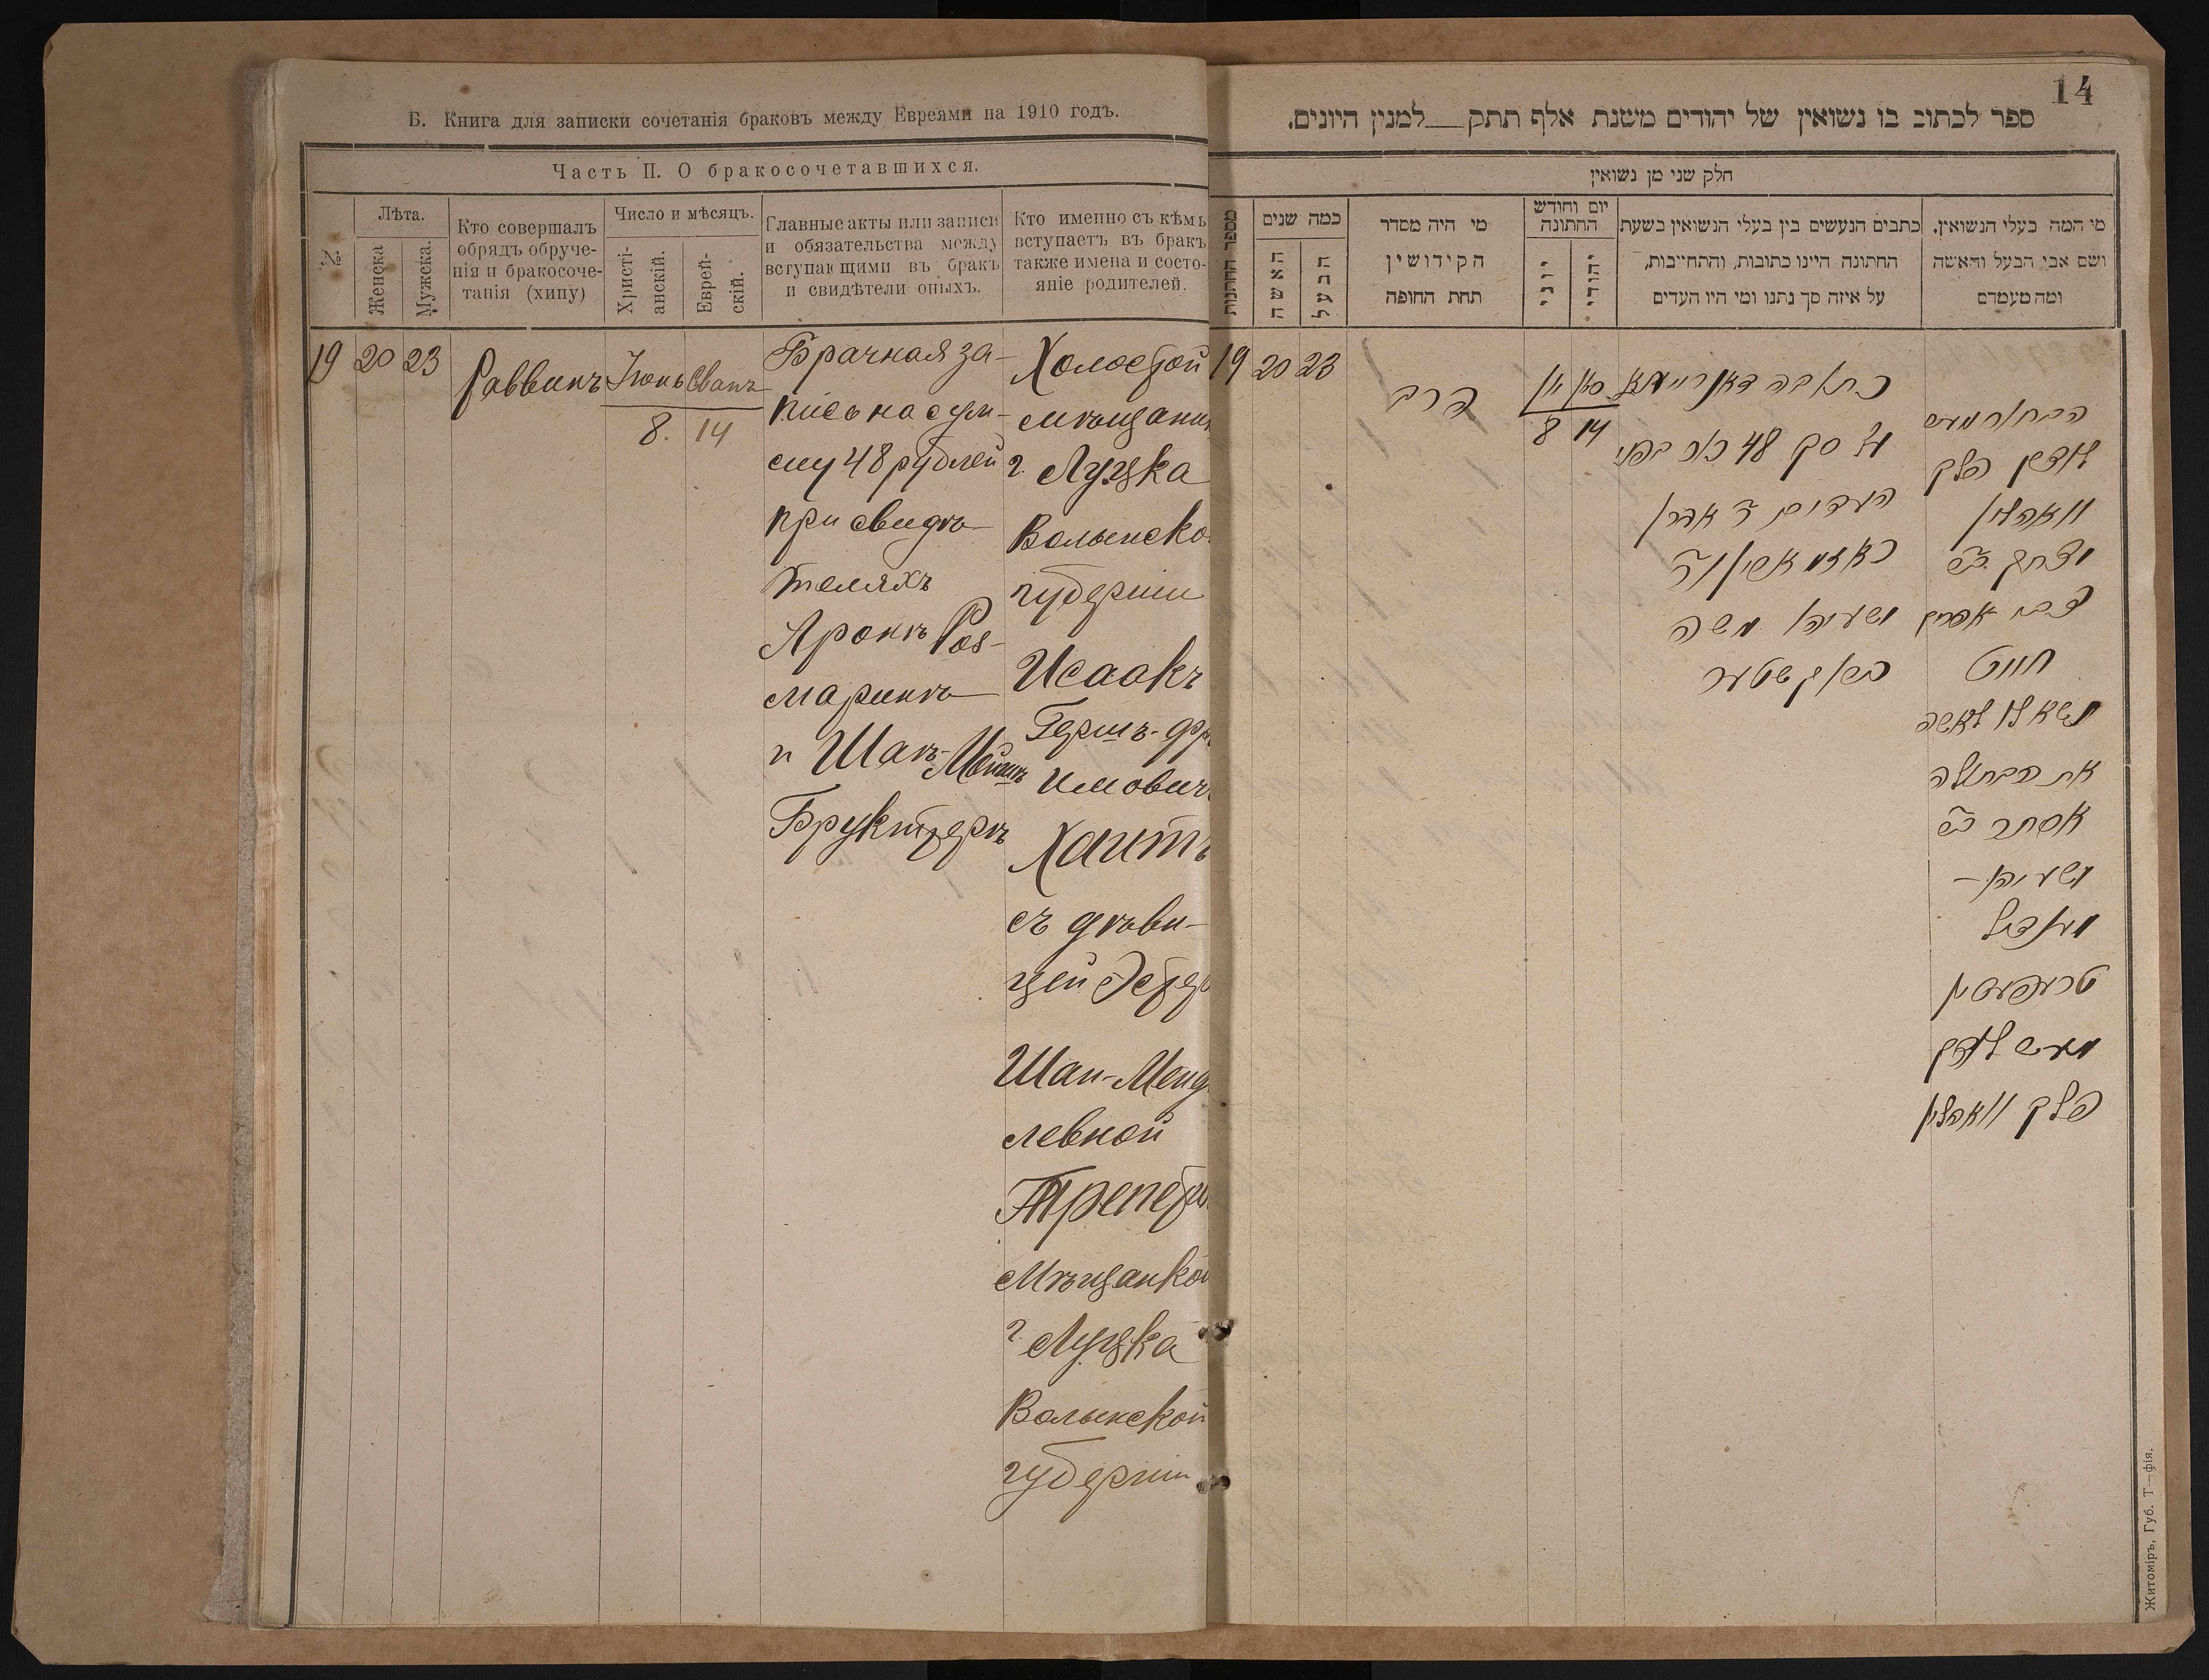 Б. Книга для записки сочетанія браковъ между Евреями на 1910 годъ.
Часть II. О бракосочетавшихся.
№
Лѣта.
Женска
Мужска.
Кто совершалъ
обрядъ обруче-
нія и бракосоче-
танія (хипу)
Число и мѣсяцъ.
Христі-
анскій.
Еврей-
скій.
Главные акты или записи
и обязательства между
вступающими въ бракъ
и свидѣтели оныхъ.
Кто именно съ кѣмъ
вступаетъ въ бракъ
также имена и состо-
яніе родителей.
19
20
23
Раввинъ
Іюнь
8.
Сванъ
14
Брачная за-
пись на сум-
му 48 рублей
при свидѣ-
теляхъ
Аронъ Роз-
маринъ
и Шаѣ-
Бруктеръ
Холостой
мѣщанин
г. Луцка
Волынско
губерніи
Исаакъ
Гершъ-Фр
имович
Хаитъ
съ дѣви-
цей Эстер
Шаи-Менд
левной
Трепет
мѣщанкой
г. Луцка
Волынской
губерніи
14
ספר לכתוב בו נשואין של יהודים משנת אלף תתק למנין היונים.
חלק שני מן נשואין
מספר החתונות
כמה שנים
האשה
הבעל
מי היה מסדר
הקידושין
תחת החופה
יום וחודש
החתונה
יוני
יהודי
כתבים הנעשים בין בעלי הנשואין בשעת
החתונה היינו כתובות, והתחייבות,
על איזה סך נתנו ומי היו העדים
מי המה בעלי הנשואין.
ושם אבי הבעל והאשה
ומה מעמדם
19
20
23
הרב
יון
8
סון
14
כתובה דאורייתא
ע׳ סך 48 רו׳ בפני
העדים ה׳ אהרן
ראזמארין וה׳
ישעיה משה
ברוקטער
הבחור מעש
לוצק פלך
וואהלין
יצחק ב״ר
צבי אפרים
חייט
נשא לו לאשה
את הבתולה
אסתר ב״ר
ישעיה-
מענדיל
טרעפעטין
מעש לוצק
פלך וואהלין
Житоміръ, Губ. Т—фія.